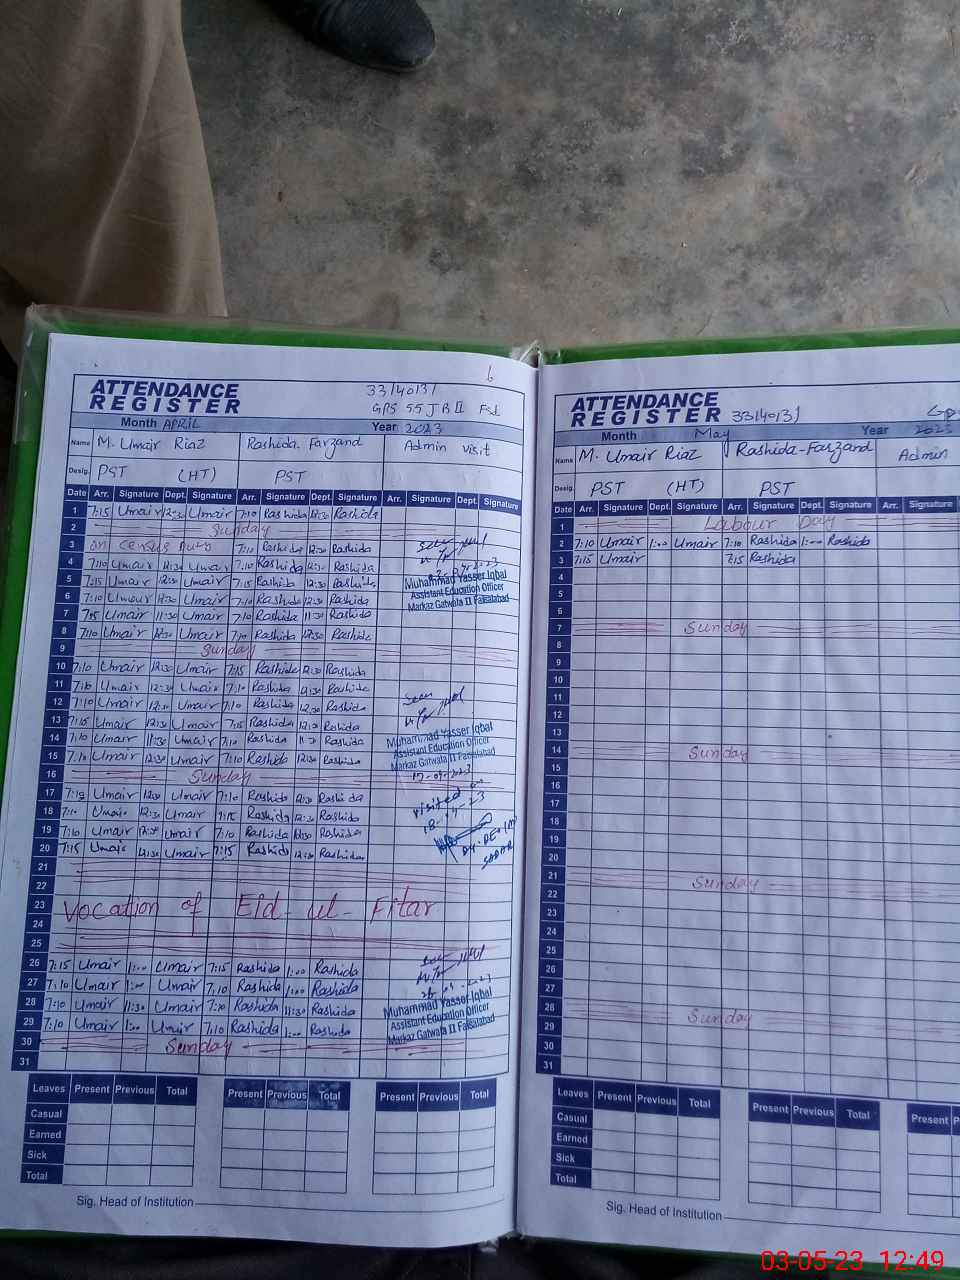 ATTENDANCE
REGISTER
33140131
GPS 55 JB II Fsd
Month APRIL Year 2023
Name M. Umair Riaz Rashida Farzand Admin visit
Desig. PST (HT) PST
Date Arr. Signature Dept. Signature Arr. Signature Dept. Signature Arr. Signature Dept. Signature
1 7:15 Umair 12:30 Umair 7:10 Rashida 12:30 Rashida
2 Sunday
3 on census duty 7:10 Rashida 12:30 Rashida
4 7:10 Umair 12:30 Umair 7:10 Rashida 12:30 Rashida
5 7:15 Umair 12:30 Umair 7:15 Rashida 12:30 Rashida
6 7:10 Umair 12:30 Umair 7:10 Rashida 12:30 Rashida
7 7:15 Umair 11:30 Umair 7:10 Rashida 11:30 Rashida
8 7:10 Umair 12:30 Umair 7:10 Rashida 12:30 Rashida
9 Sunday
10 7:10 Umair 12:30 Umair 7:15 Rashida 12:30 Rashida
11 7:10 Umair 12:30 Umair 7:10 Rashida 12:30 Rashida
12 7:10 Umair 12:30 Umair 7:10 Rashida 12:30 Rashida
13 7:15 Umair 12:30 Umair 7:15 Rashida 12:30 Rashida
14 7:10 Umair 11:30 Umair 7:10 Rashida 11:30 Rashida
15 7:10 Umair 12:30 Umair 7:10 Rashida 12:30 Rashida
16 Sunday
17 7:10 Umair 12:30 Umair 7:10 Rashida 12:30 Rashida
18 7:10 Umair 12:30 Umair 7:15 Rashida 12:30 Rashida
19 7:10 Umair 12:30 Umair 7:10 Rashida 12:30 Rashida
20 7:15 Umair 12:30 Umair 7:15 Rashida 12:30 Rashida
21
22
23 Vocation of Eid-ul-Fitar
24
25
26 7:15 Umair 1:00 Umair 7:15 Rashida 1:00 Rashida
27 7:10 Umair 1:00 Umair 7:10 Rashida 1:00 Rashida
28 7:10 Umair 11:30 Umair 7:10 Rashida 11:30 Rashida
29 7:10 Umair 1:00 Umair 7:10 Rashida 1:00 Rashida
30 Sunday
31
Seen
Muhammad Yasser Iqbal
Assistant Education Officer
Markaz Gatwala II Faisalabad
Seen
Muhammad Yasser Iqbal
Assistant Education Officer
Markaz Gatwala II Faisalabad
visited on
Muhammad Yasser Iqbal
Assistant Education Officer
Markaz Gatwala II Faisalabad
Leaves Present Previous Total Present Previous Total Present Previous Total
Casual
Earned
Sick
Total
Sig. Head of Institution
ATTENDANCE
REGISTER
33140131
Month May Year 2023
Name M. Umair Riaz Rashida-Farzand Admin
Desig. PST (HT) PST
Date Arr. Signature Dept. Signature Arr. Signature Dept. Signature Arr. Signature
1 Labour Day
2 7:10 Umair 1:00 Umair 7:10 Rashida 1:00 Rashida
3 7:15 Umair 7:15 Rashida
4
5
6
7 Sunday
8
9
10
11
12
13
14 Sunday
15
16
17
18
19
20
21 Sunday
22
23
24
25
26
27
28 Sunday
29
30
31
Leaves Present Previous Total Present Previous Total Present
Casual
Earned
Sick
Total
Sig. Head of Institution
03-05-23 12:49